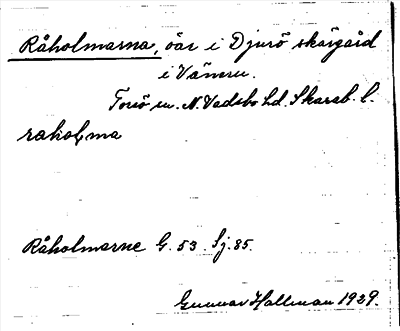 Råholmarna, öar i Djurö skärgård
i Vänern.
Torsö sn. N. Vadsbo hd. Skarab. l.
raholma
Råholmarne G. 53. Sj. 85.
Gunnar Hallman 1939.